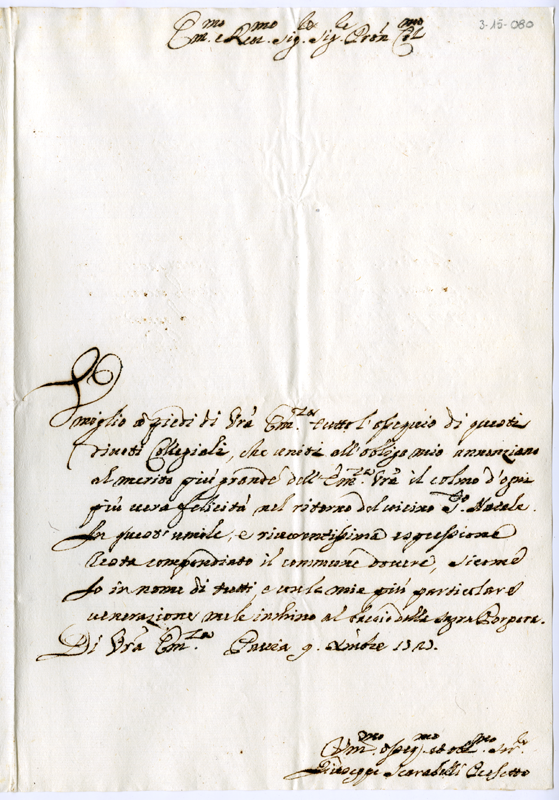 3-15-080
Em.mo e Rev.mo Sig.re Sig.re Pron Col.mo
Umiglio a' piedi di Vra Em.za tutto l'ossequio di questi
divoti Collegiali, che uniti all'obligo mio annunziano
al merito più grande dell'Em.za Vra il colmo d'ogni
più vera felicità nel ritorno del vicino S.to Natale.
In quest'umile, e riverentissima espressione
resta compendiato il commune dovere, sicome
Io in nome di tutti e con la mia più particolare
venerazione me le inchino al bacio della Sagra Porpora.
Di Vra Em.za Pavia 9. Xmbre
Um.mo osseq.mo et obl.mo Ser.re
Giuseppe Scarabelli